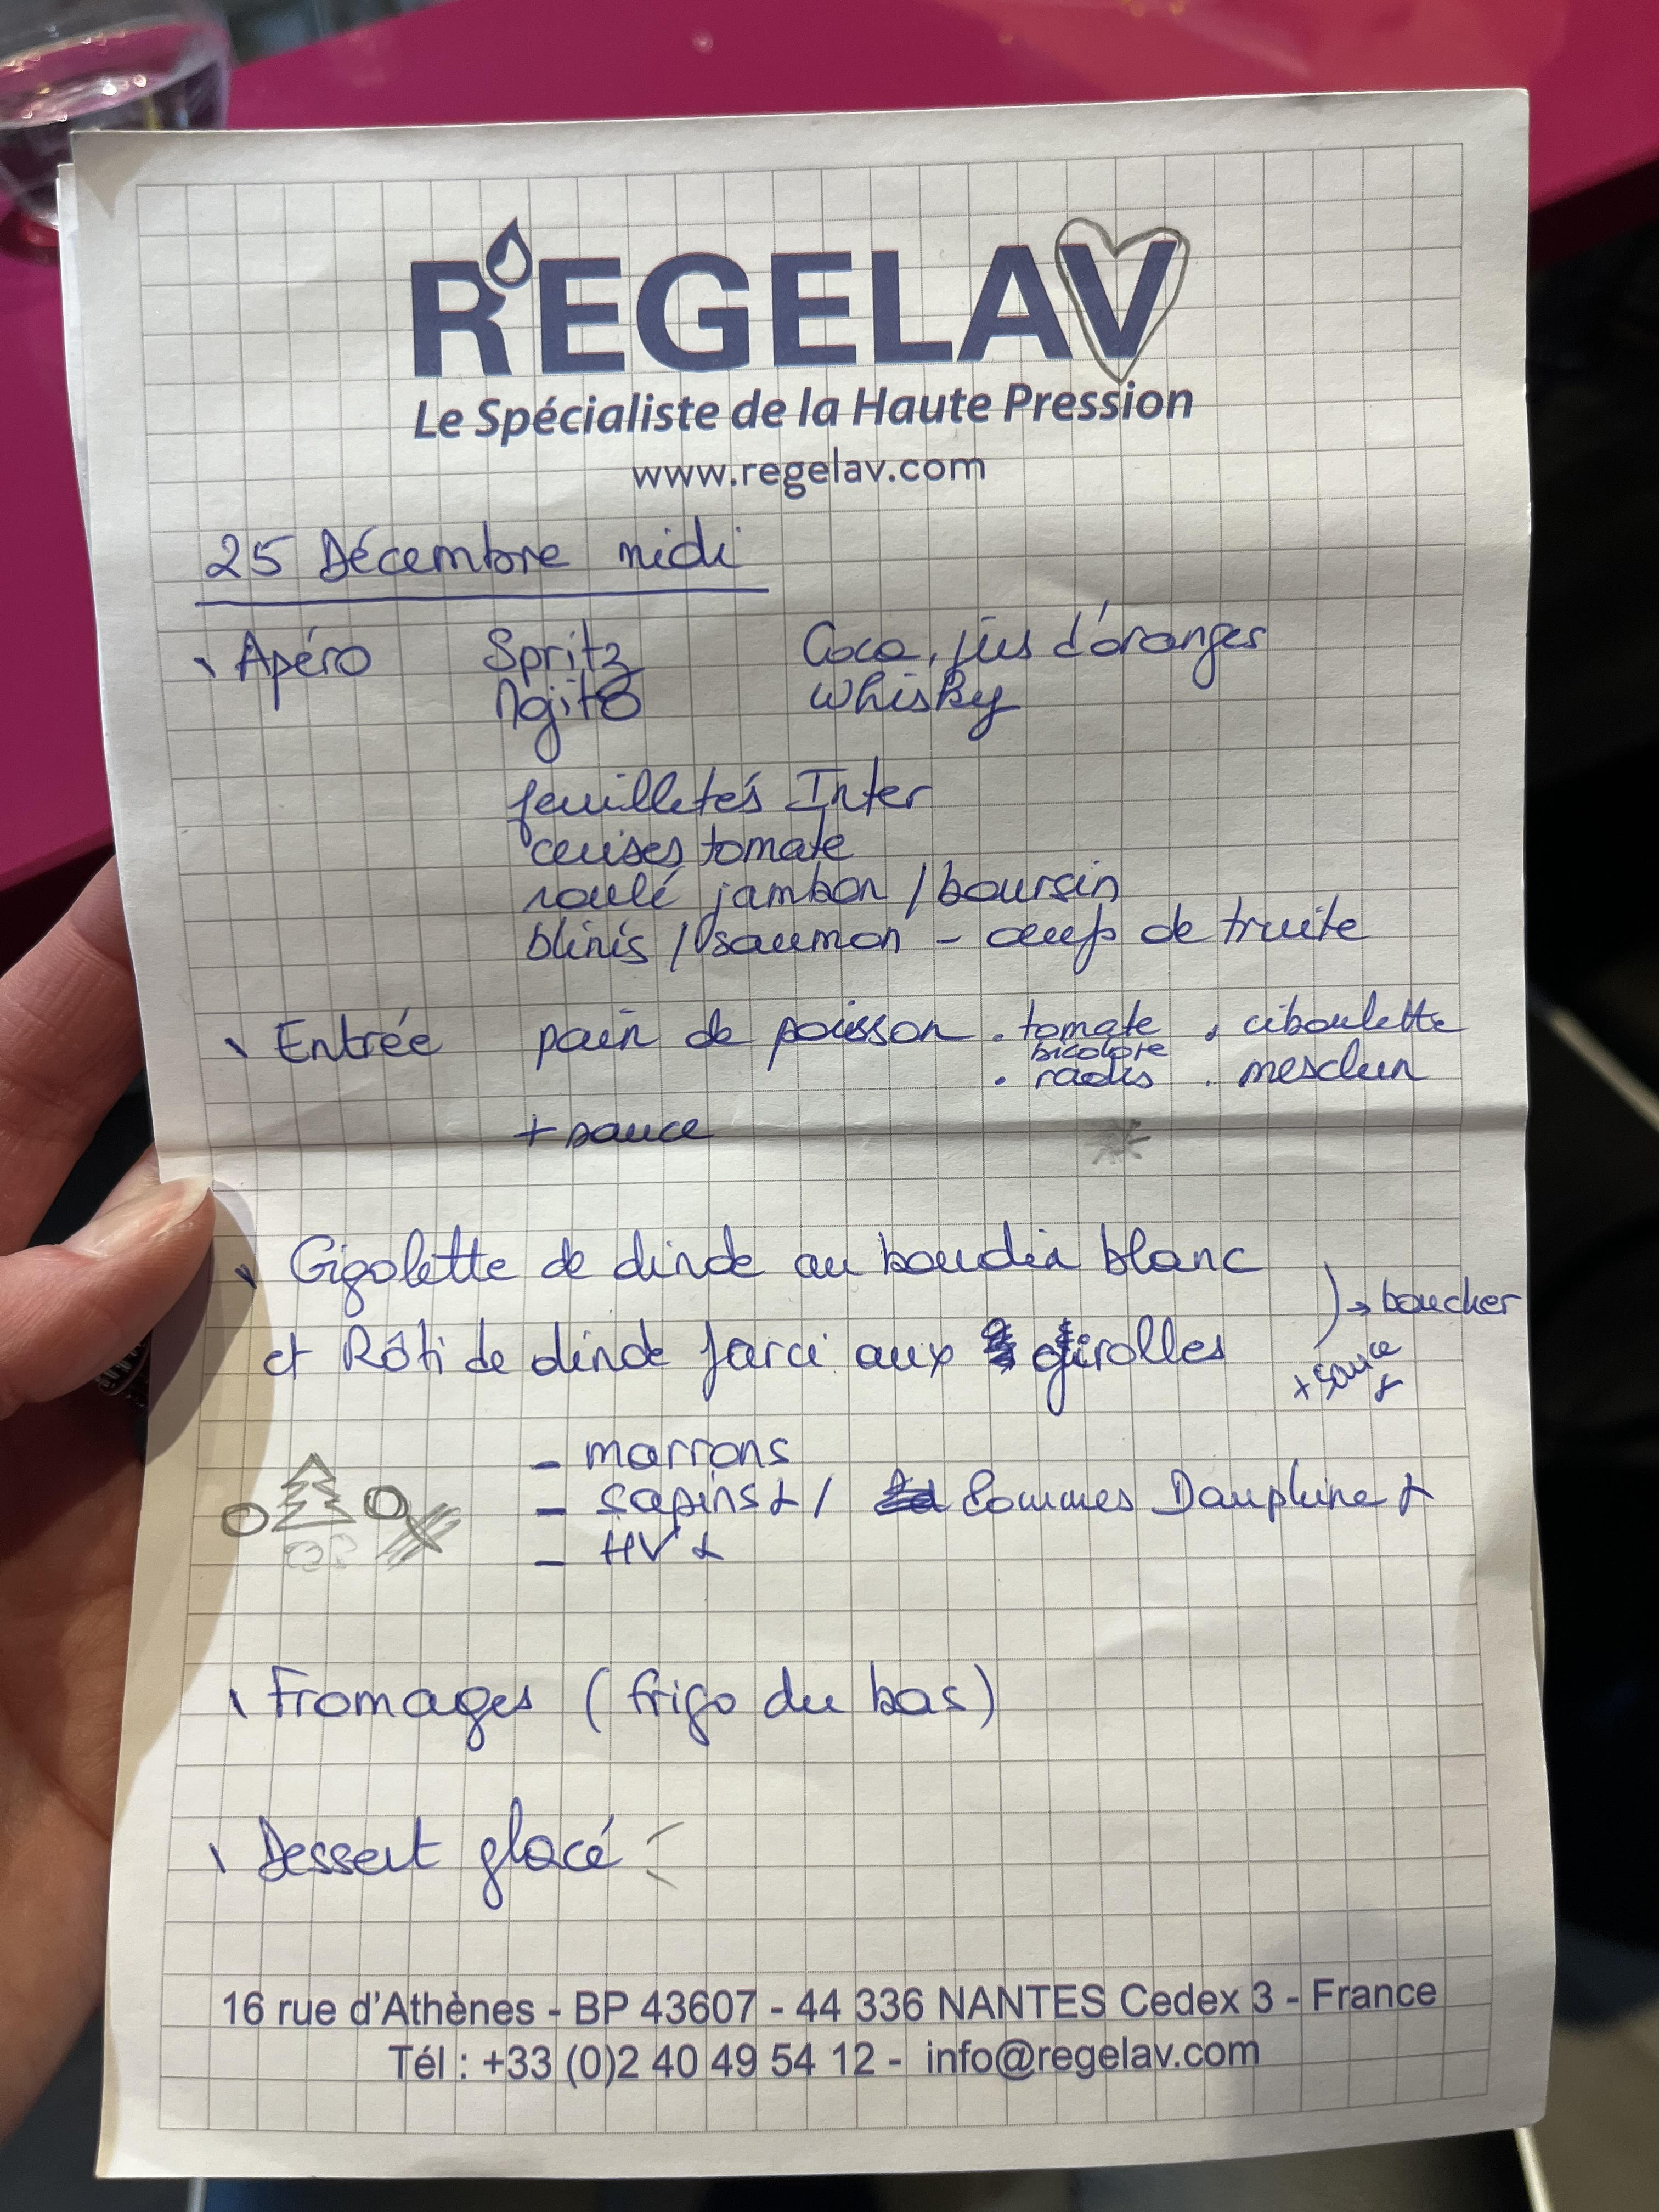 REGELAV
Le Spécialiste de la Haute Pression
www.regelav.com
25 Décembre midi
Apéro Spritz Coca, jus d'oranges
Mojito Whisky
feuilletés Inter
cerises tomate
roulé jambon / boursin
blinis / saumon - oeufs de truite
Entrée pain de poisson . tomate bicolore . ciboulette
. radis . mesclun
+ sauce
Gigolette de dinde au boudin blanc
→ boucher
et Rôti de dinde farci aux girolles
+ sauce
- marrons
- sapins / Pommes Dauphine
- HV
Fromages (frigo du bas)
Dessert glacé
16 rue d'Athènes - BP 43607 - 44 336 NANTES Cedex 3 - France
Tél : +33 (0)2 40 49 54 12 - info@regelav.com